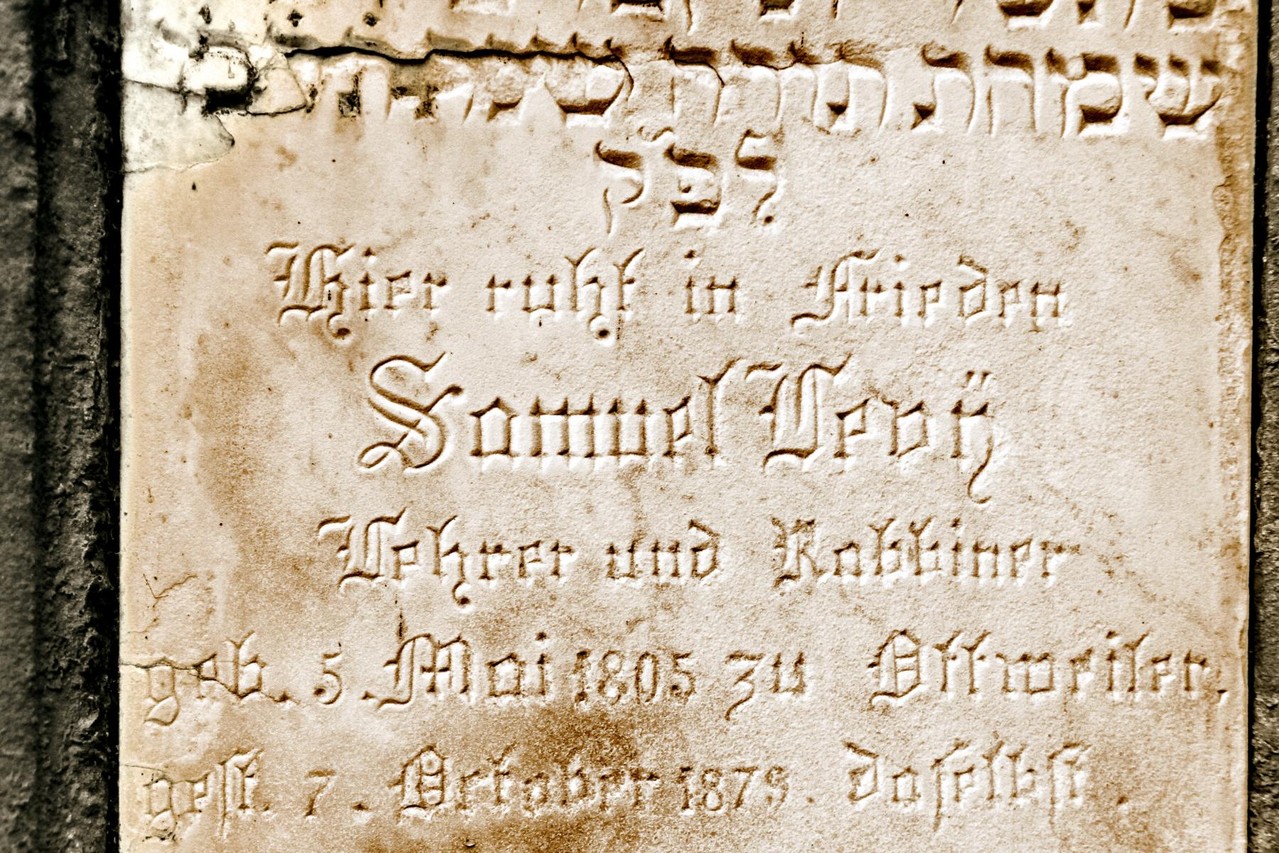 שמחת תורה
לפק
Hier ruht in Frieden
Samuel Levÿ
Lehrer und Rabbiner
geb. 5. Mai 1805 zu Ottweiler,
gest. 7. October 1879. daselbst.